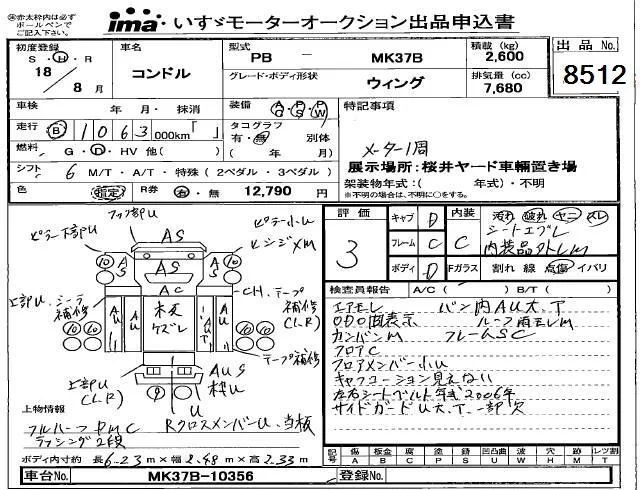 ㊟赤太枠内は必ず
ボールペンで
ご記入下さい。
ima いすゞモーターオークション出品申込書
初度登録
S・H・R
18
8月
車名
コンドル
型式
PB － MK37B
グレード・ボディ形状
ウィング
積載(kg)
2,600
排気量(cc)
7,680
出品No.
8512
車検 年・月・抹消
装備 AG PS PW
特記事項
走行 B 1063 000km「 」
タコグラフ
有・無 別体
( 年 月)
メーター1周
燃料 G・D・HV 他( )
展示場所:桜井ヤード車輛置き場
シフト 6 M/T・A/T・特殊(2ペダル・3ペダル)
架装物年式:( 年式)・不明
※不明の場合は、不明に○をする。
色 (指定) R券 有・無 12,790 円
評価
3
キャブ D
フレーム C
ボディ D
内装 C
汚れ 破れ ヤニ スレ
シートエプレ
内装品外レM
Fガラス 割れ 線 点傷 イバリ
検査員報告 A/C( ) B/T( )
エアモレ バン内AU大、T
ODO面表示 ルーフ雨モレM
カンバンM フレームSC
フロアC
フロアメンバー小U
キャブコーション見えない
左右シートベルト年式2006年
サイドガードU大、T、一部欠
フップ部U
ピラー下部U
ピラー小U
ヒンジXM
AS
AS
AC
10 10
上部U、シーラー補修
CH、テープ補修
(L-R)
AU
木更
ケズレ
AU
テープ補修
上部U
(L-R)
AUS
枠U
U
Rクロスメンバー U、当板
上物情報
フルハーフ PMC
ラッシング2段
ボディ内寸約 長6.23m×幅2.48m×高2.33m
記号 傷A 凹B 板金K 腐C 塗P 錆S 凹凸曲U 波W 穴H 跡X 要M レツ割T
車台No. MK37B-10356 登録No.